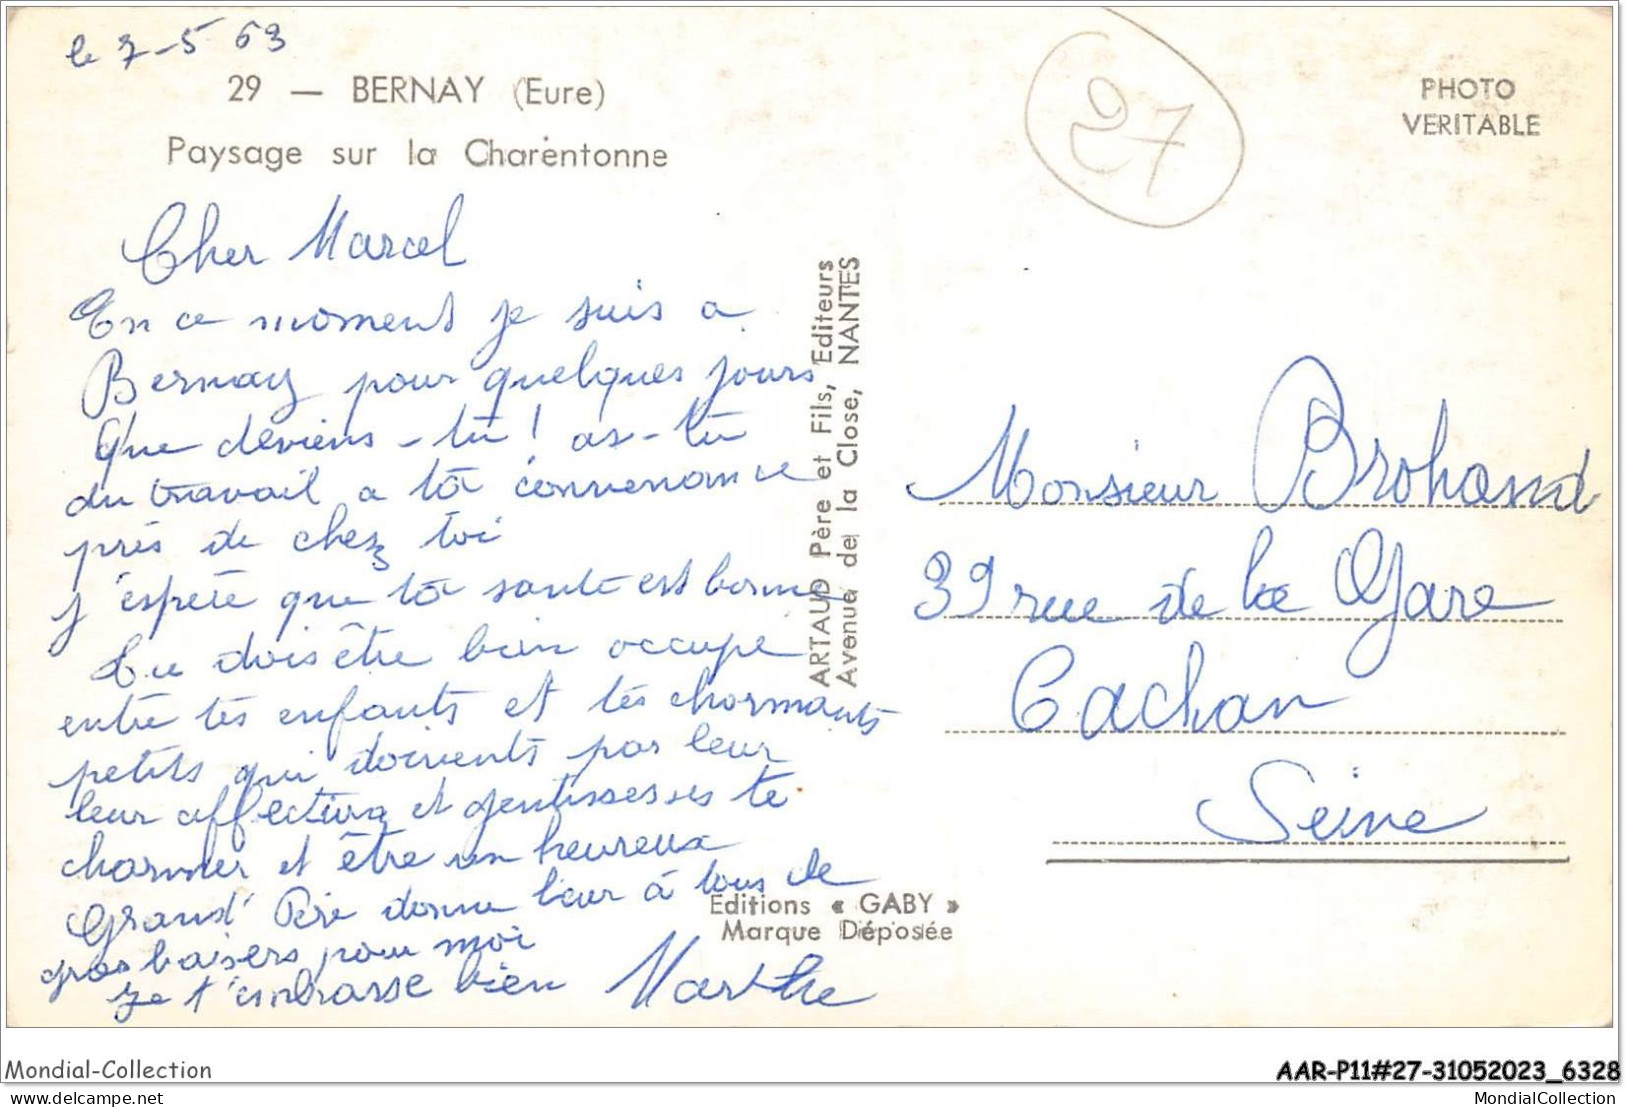 le 7-5 63
29 — BERNAY (Eure)
Paysage sur la Charentonne
Cher Marcel
En ce moment je suis a
Bernay pour quelques jours
Que deviens-tu! as-tu
du travail a ta convenance
près de chez toi
j'espère que ta sante est bonne
tu dois être bien occupé
entre tes enfants et tes charmants
petits qui doivents par leur
leur affections et gentissesses te
charmer et être un heureux
Grand Père donne leur à tous de
gros baisers pour moi
Je t'embrasse bien Marthe
ARTAUD Père et Fils, Editeurs
Avenue de la Close, NANTES
Editions « GABY »
Marque Déposée
27
PHOTO
VERITABLE
Monsieur Brohand
39 rue de la Gare
Cachan
Seine
Mondial-Collection
AAR-P11#27-31052023_6328
delcampe.net
MondialCollection